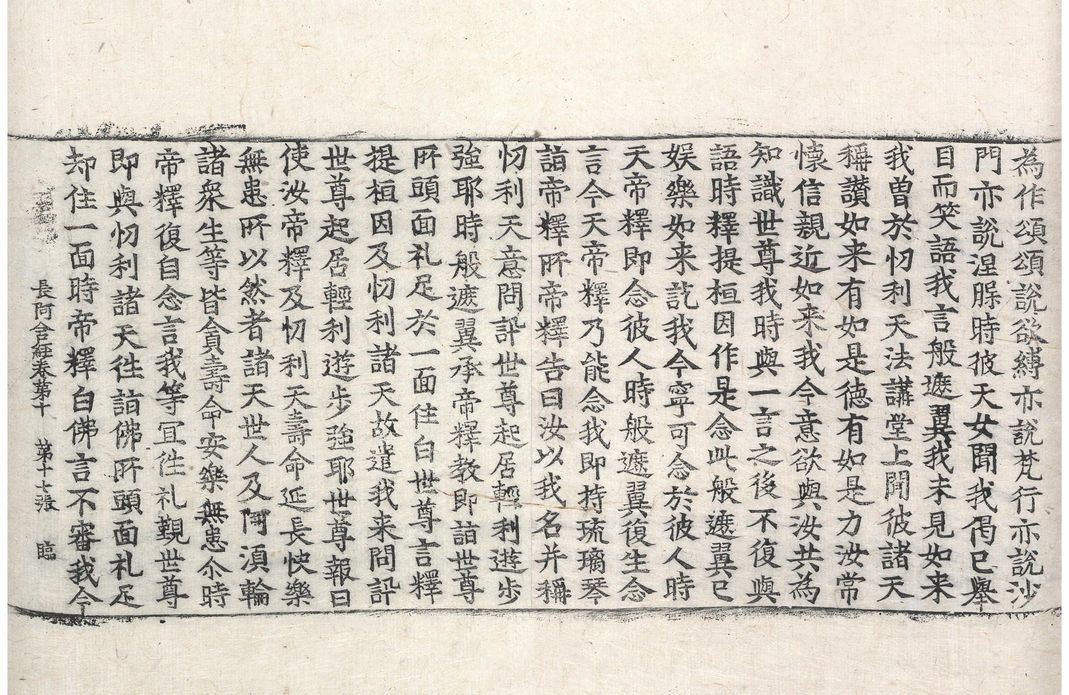 為作頌頌說欲縛亦說梵行亦說沙
門亦說涅槃時彼天女聞我偈已舉
目而笑語我言般遮翼我未見如来
我曽於忉利天法講堂上聞彼諸天
稱讃如来有如是德有如是力汝常
懷信親近如来我今意欲與汝共為
知識世尊我時與一言之後不復與
語時釋提桓因作是念此般遮翼已
娛樂如来訖我今寧可念於彼人時
天帝釋即念彼人時般遮翼復生念
言今天帝釋乃能念我即持琉璃琴
詣帝釋所帝釋告曰汝以我名并稱
忉利天意問訊世尊起居輕利遊步
強耶時般遮翼承帝釋教即詣世尊
所頭面礼足於一面住白世尊言釋
提桓因及忉利諸天故遣我来問訊
世尊起居輕利遊步強耶世尊報曰
使汝帝釋及忉利天壽命延長快樂
無患所以然者諸天世人及阿湏輪
諸衆生等皆貪壽命安樂無患尒時
帝釋復自念言我等冝往礼覲世尊
即與忉利諸天往詣佛所頭面礼足
却住一面時帝釋白佛言不審我今
長阿含經卷苐十 苐十七張 臨